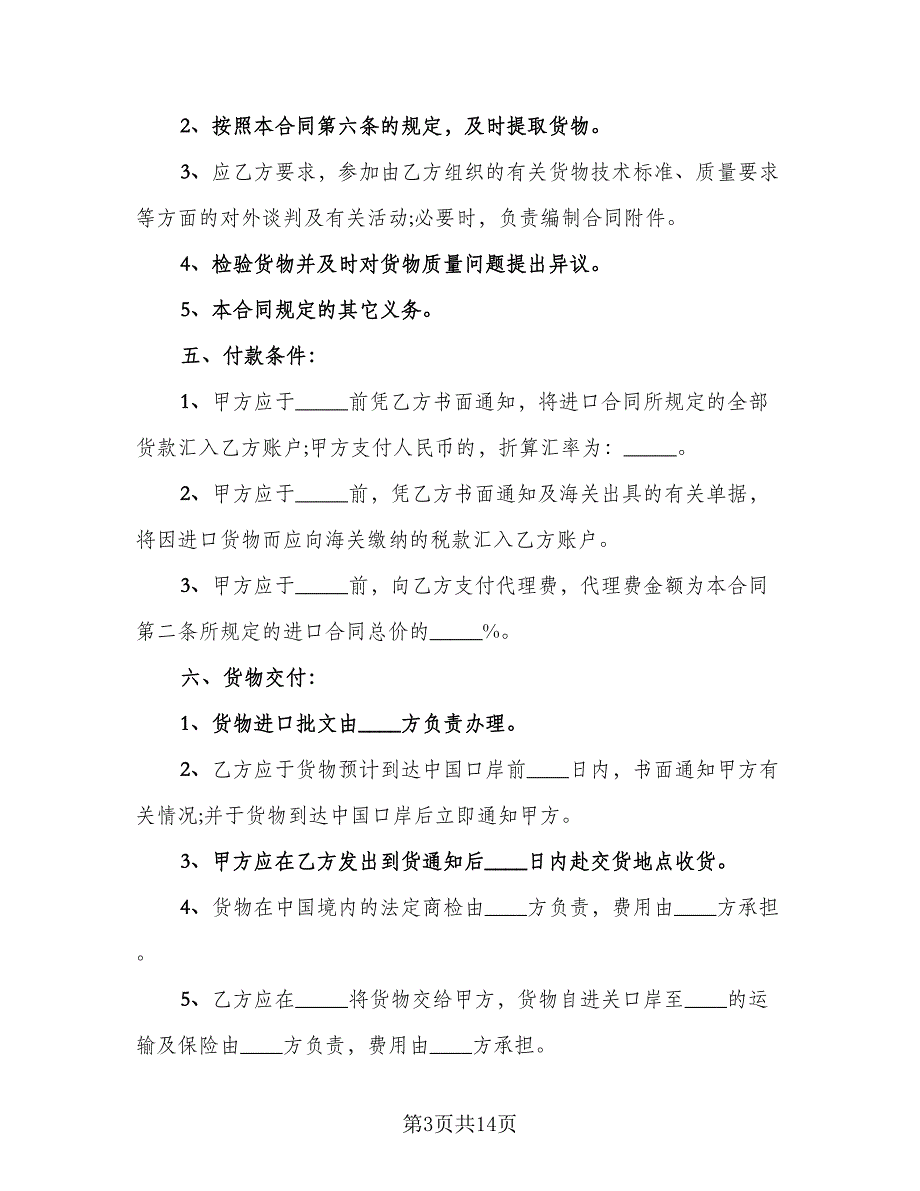 2、按照本合同第六条的规定，及时提取货物。
3、应乙方要求，参加由乙方组织的有关货物技术标准、质量要求
等方面的对外谈判及有关活动;必要时，负责编制合同附件。
4、检验货物并及时对货物质量问题提出异议。
5、本合同规定的其它义务。
五、付款条件：
1、甲方应于_____前凭乙方书面通知，将进口合同所规定的全部
货款汇入乙方账户;甲方支付人民币的，折算汇率为：_____。
2、甲方应于_____前，凭乙方书面通知及海关出具的有关单据，
将因进口货物而应向海关缴纳的税款汇入乙方账户。
3、甲方应于_____前，向乙方支付代理费，代理费金额为本合同
第二条所规定的进口合同总价的_____%。
六、货物交付：
1、货物进口批文由____方负责办理。
2、乙方应于货物预计到达中国口岸前____日内，书面通知甲方有
关情况;并于货物到达中国口岸后立即通知甲方。
3、甲方应在乙方发出到货通知后____日内赴交货地点收货。
4、货物在中国境内的法定商检由____方负责，费用由____方承担
。
5、乙方应在_____将货物交给甲方，货物自进关口岸至____的运
输及保险由____方负责，费用由____方承担。
第3页共14页